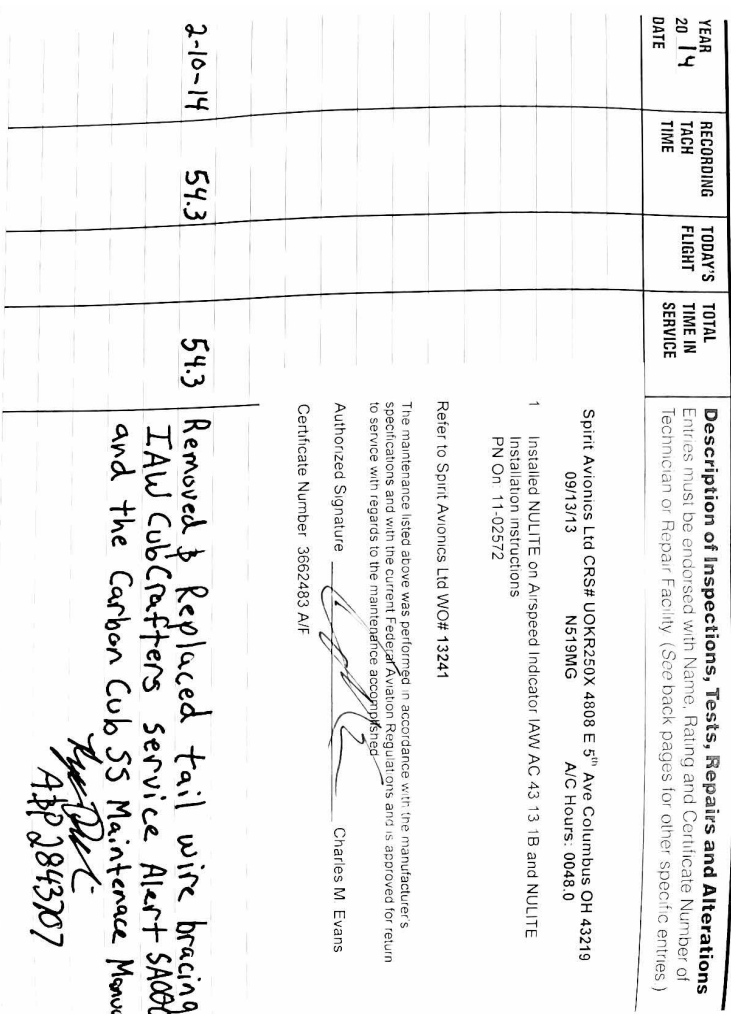 YEAR
20 14
DATE
RECORDING
TACH
TIME
TODAY'S
FLIGHT
TOTAL
TIME IN
SERVICE
Description of Inspections, Tests, Repairs and Alterations
Entries must be endorsed with Name, Rating and Certificate Number of
Technician or Repair Facility (See back pages for other specific entries)
Spirit Avionics Ltd CRS# UOKR250X 4808 E 5th Ave Columbus OH 43219
09/13/13 N519MG A/C Hours: 0048.0
1 Installed NULITE on Airspeed Indicator IAW AC 43 13 1B and NULITE
Installation instructions
PN On 11-02572
Refer to Spirit Avionics Ltd WO# 13241
The maintenance listed above was performed in accordance with the manufacturer's
specifications and with the current Federal Aviation Regulations and is approved for return
to service with regards to the maintenance accomplished
Authorized Signature Charles M Evans
Certificate Number 3662483 A/F
2-10-14 54.3 54.3 Removed & Replaced tail wire bracing
IAW CubCrafters Service Alert
and the Carbon Cub SS Maintenace
A&P 2843707